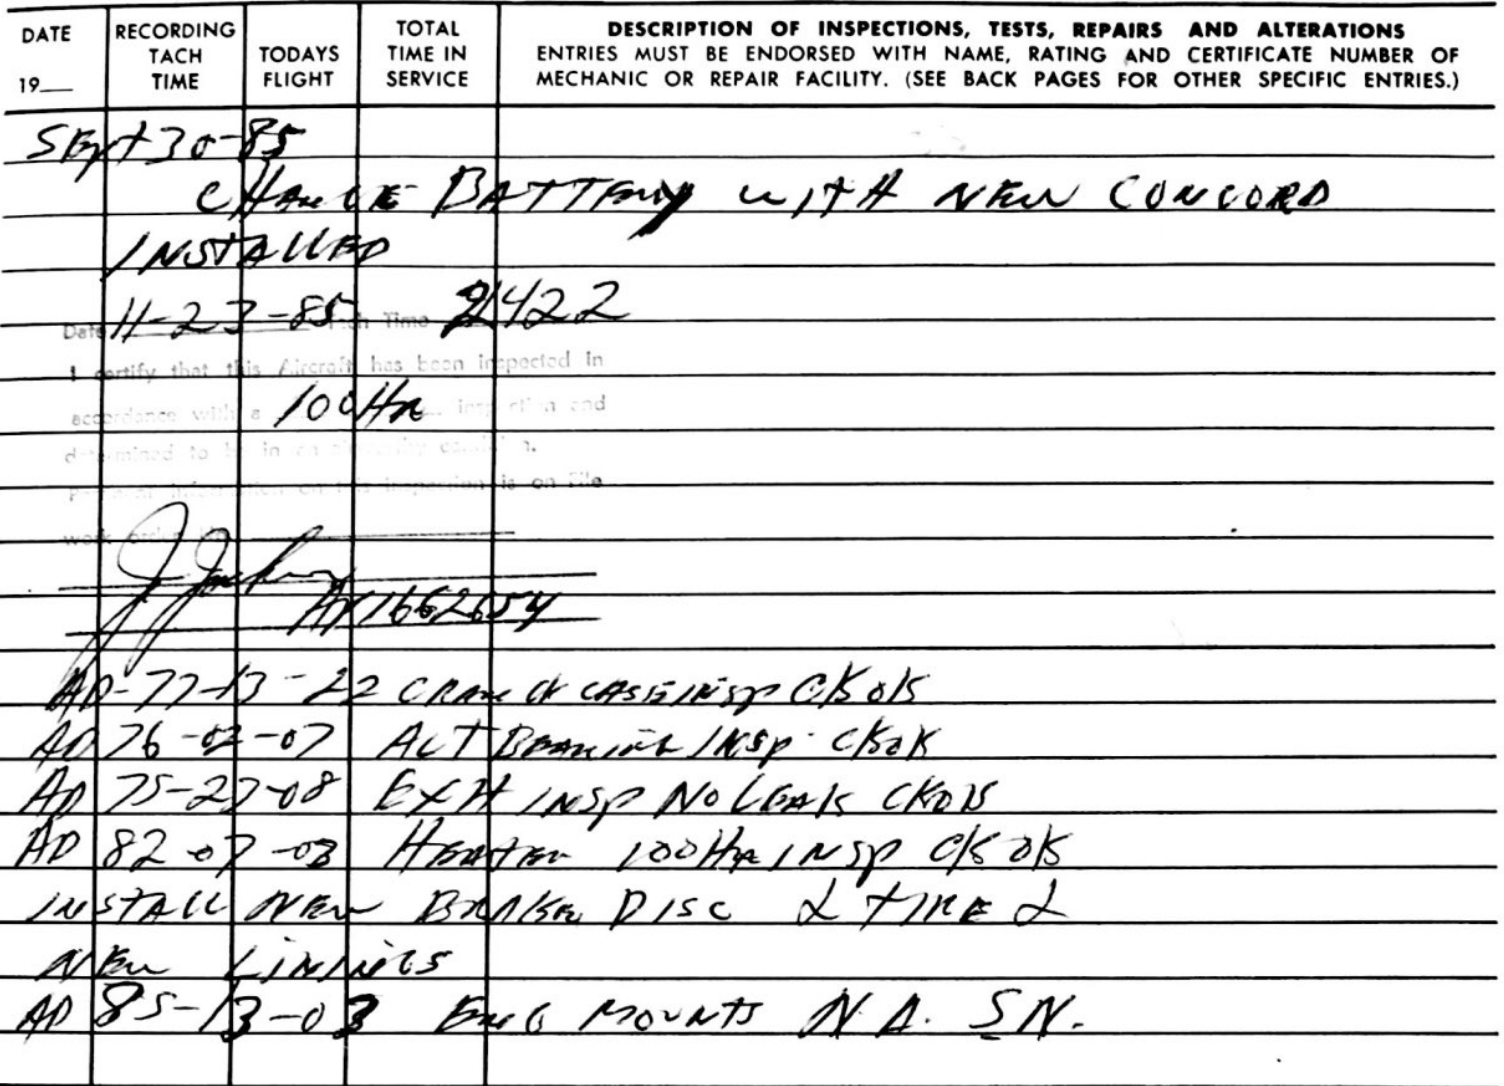 DATE
19__
RECORDING
TACH
TIME
TODAYS
FLIGHT
TOTAL
TIME IN
SERVICE
DESCRIPTION OF INSPECTIONS, TESTS, REPAIRS AND ALTERATIONS
ENTRIES MUST BE ENDORSED WITH NAME, RATING AND CERTIFICATE NUMBER OF
MECHANIC OR REPAIR FACILITY. (SEE BACK PAGES FOR OTHER SPECIFIC ENTRIES.)
Sept 30-85
CHANGE BATTERY WITH NEW CONCORD
INSTALLED
Date 11-23-85 Tach Time 2422
I certify that this Aircraft has been inspected in
accordance with a 100 Hr inspection and
determined to be in an airworthy condition.
information on this inspection is on File
work order
1662654
AD-77-13-22 CRANK CASE INSP CK OK
AD 76-02-07 ACT BEARING INSP CK OK
AD 75-23-08 EXH INSP NO LEAK CK OK
AD 82-07-03 HEATER 100 Hr INSP CK OK
INSTALL NEW BRAKE DISC L TIRE L
NEW LININGS
AD 85-13-03 ENG MOUNTS N.A. S.N.